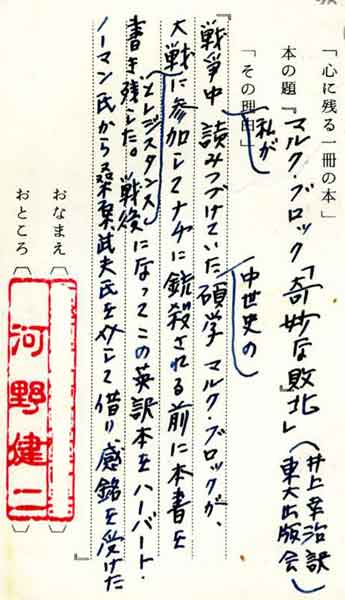 「心に残る一冊の本」
本の題『マルク・ブロック「奇妙な敗北」(井上幸治訳
東大出版会)
「その理由」
『戦争中 私が 読みつづけていた 中世史の 碩学 マルク・ブロックが、
大戦に参加して レジスタンス ナチに銃殺される前に本書を
書き残した。戦後になってこの英訳本をハーバート・
ノーマン氏から桑原武夫氏を介して借り、感銘を受けた
』
おなまえ
おところ
河野健二